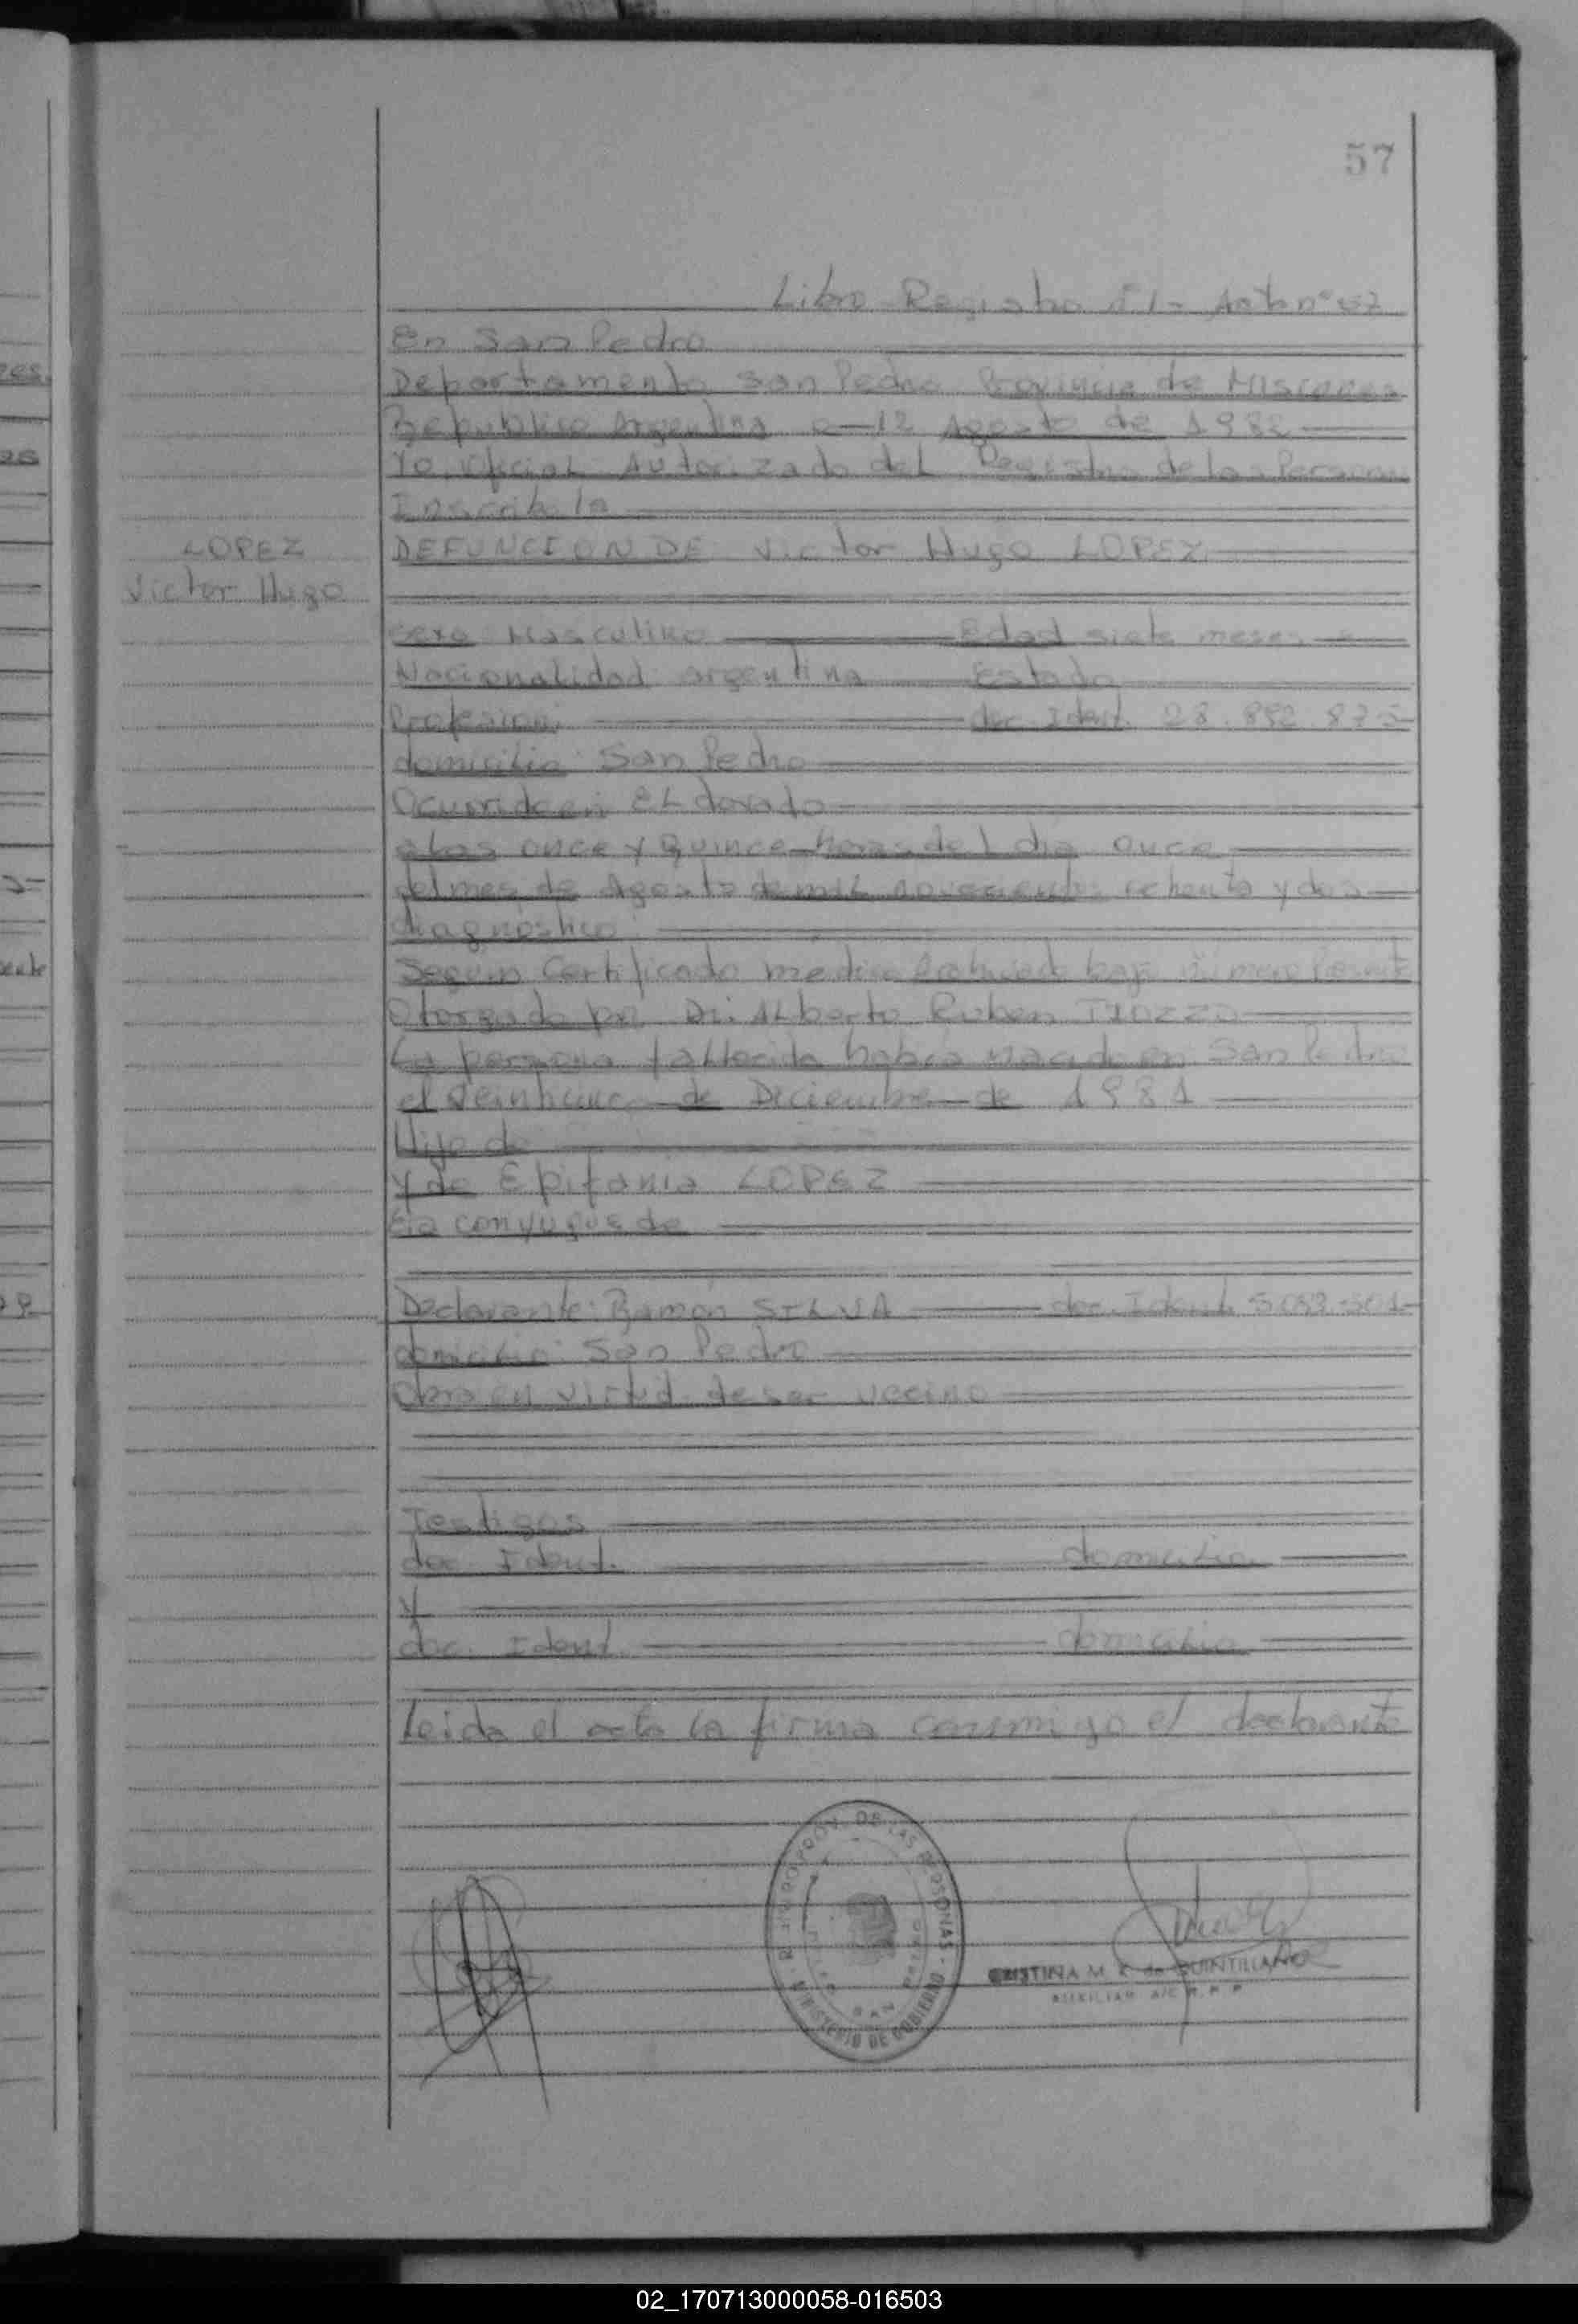 57
Libro Registro n° 1 - Acta n° 57
En San Pedro
Departamento San Pedro Provincia de Misiones
Republica Argentina a 12 Agosto de 1982
Yo, Oficial Autorizado del Registro de las Personas
Inscribo la
LOPEZ
Victor Hugo
DEFUNCION DE Victor Hugo LOPEZ
Sexo Masculino Edad siete meses
Nacionalidad argentina Estado
Profesion: doc. Ident. 28.892.875
domicilio: San Pedro
Ocurrida en ELdorado
a las once y Quince horas del dia once
del mes de Agosto de mil novecientos ochenta y dos
diagnóstico
Segun Certificado medico archivado bajo número
Otorgado por Dr: ALberto Ruben
La persona fallecida habia nacido en San Pedro
el de Diciembre de 1981
Hijo de
y de Epifania LOPEZ
Era conyugue de
Declarante: Ramón SILVA doc. Ident.
domicilio: San Pedro
Obra en virtud de ser vecino
Testigos
doc. Ident. domicilio
y
doc. Ident. domicilio
Leida el acta la firma conmigo el declarante
PROV. DE LAS PERSONAS
SAN PEDRO
MINISTERIO DE GOBIERNO
CRISTINA M. de QUINTILLANO
AUXILIAR A/C R. P. P.
02_170713000058-016503